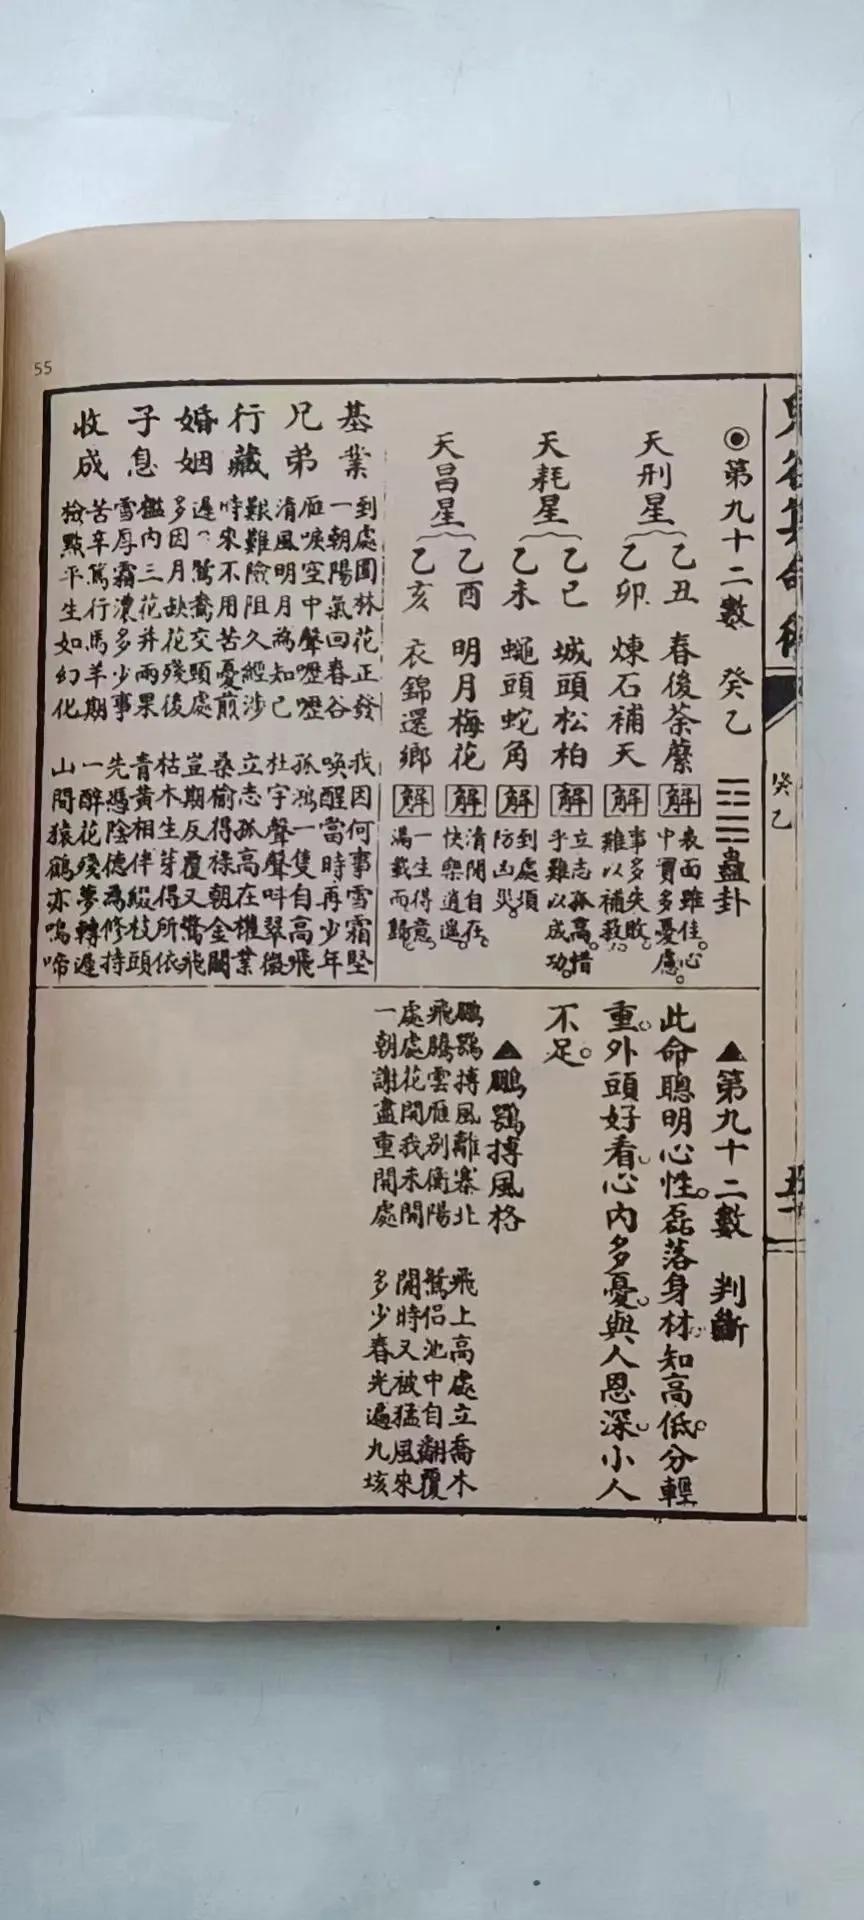 55
癸乙
◉第九十二數 癸乙 蠱卦
天刑星
乙丑 春後荼蘼 解 表面雖佳。心中實多憂慮。
乙卯 煉石補天 解 事多失敗。難以補救。
天耗星
乙巳 城頭松柏 解 立志孤高。惜乎難以成功。
乙未 蠅頭蛇角 解 到處須防凶災。
天昌星
乙酉 明月梅花 解 清閒自在。快樂逍遙。
乙亥 衣錦還鄉 解 一生得意。滿載而歸。
基業
到處園林花正發 我因何事雪霜堅
一朝陽氣回春谷 喚醒當時再少年
兄弟
雁唳空中聲嚦嚦 孤鴻一隻自高飛
清風明月為知己 杜宇聲聲叫翠微
行藏
艱難險阻久經涉 立志孤高在權業
時來不用苦憂煎 桑榆得祿朝金闕
婚姻
遲鶯鴦交頸處 豈期反覆又驚飛
多因月缺花殘後 枯木生芽得所依
子息
檻內三花并兩果 青黃相伴綴枝頭
雪厚霜濃多少事 先憑陰德為修持
收成
苦辛篤行馬羊期 一醉花殘夢轉遲
檢點平生如幻化 山間猿鶴亦鳴啼
▲第九十二數 判斷
此命聰明心性。磊落身材。知高低。分輕
重。外頭好看。心內多憂。與人恩深。小人
不足。
▲鵬鶚摶風格
鵬鶚摶風離塞北 飛上高處立喬木
飛騰雲雁別衡陽 鴛侶池中自翻覆
處處花開我未開 開時又被猛風來
一朝謝盡重開處 多少春光遍九垓